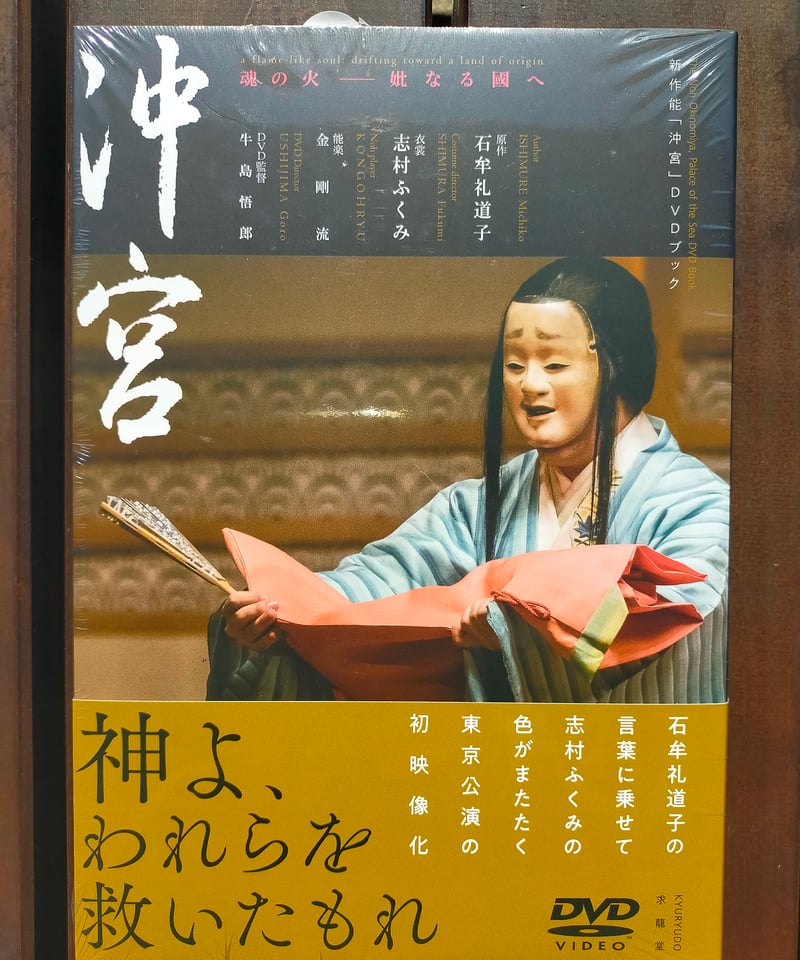 沖宮
a flame-like soul: drifting toward a land of origin
魂の火――妣なる國へ
The Noh Okinomiya, Palace of the Sea DVD Book
新作能「沖宮」DVDブック
Author
ISHIMURE Michiko
原作
石牟礼道子
Costume director
SHIMURA Fukumi
衣裳
志村ふくみ
Noh player
KONGOHRYU
能楽
金剛流
DVD Director
USHIJIMA Goro
DVD監督
牛島悟郎
石牟礼道子の
言葉に乗せて
志村ふくみの
色がまたたく
東京公演の
初映像化
神よ、
われらを
救いたもれ
DVD
VIDEO
TM
KYURYUDO
求龍堂